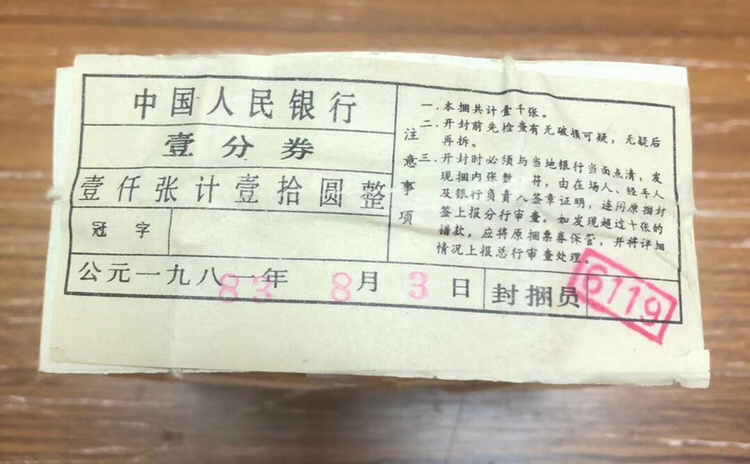 中国人民银行
壹分券
壹仟张计壹拾圆整
冠字
公元一九八一年 83 8月3日
封捆员 6119
注意事项
一.本捆共计壹千张。
二.开封前先检查有无破损可疑，无疑后
再拆。
三.开封时必须与当地银行当面点清，发
现捆内张数 符，由在场人、经手人
及银行负责人签章证明，连同原捆封
签上报分行审查，如发现超过十张的
错款，应将原捆票券保管，并将详细
情况上报总行审查处理。